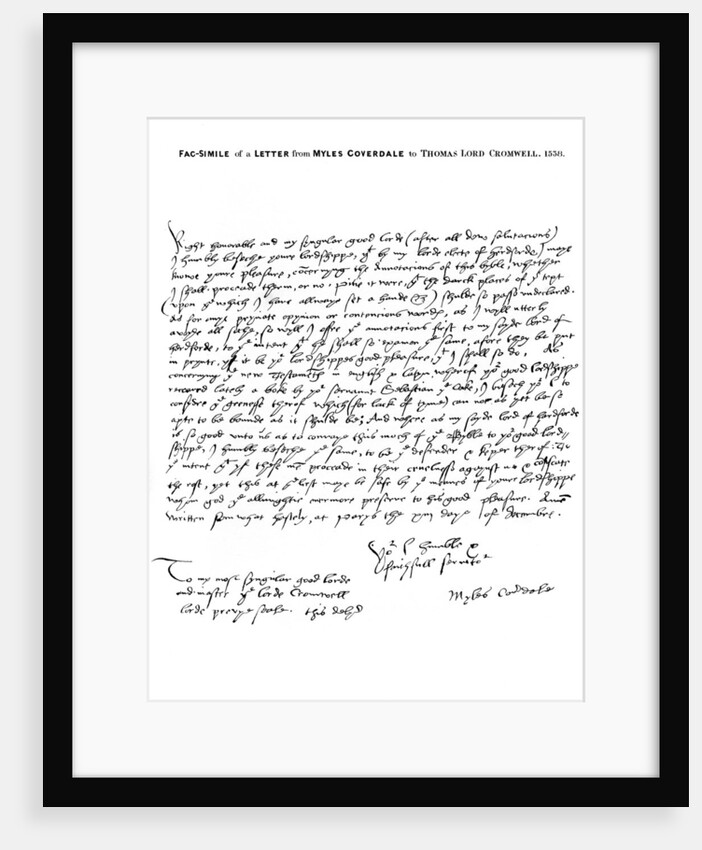 FAC-SIMILE of a LETTER from MYLES COVERDALE to THOMAS LORD CROMWELL. 1538.
Right honorable and my syngular good lorde (after all dew salutacions)
I humbly beseche youre lordshippe, yt by my lorde electe of herdforde, I maye
knowe youre pleasure, concernyng the Annotacions of this byble, whether
I shall proceade therin, or no. Pitie it were, yt the darck places of ye text
(upon ye which I have allwaye set a hande) shulde so passe undeclared.
As for eny pryvate opynion or contencious wordes, as I wyll utterly
avoyde all soche, so wyll I offre ye annotacions first to my sayde lord of
herdforde, to ye intent yt he shall so examen ye same, afore they be put
in prynte, yf it be yor lordshippes good pleasure yt I shall so do. As
concernyng ye new Testament in english & latyn, wherof yor good lordshippe
receaved lately a boke by yor servaunt Sebastian ye Coke, I besech yor L. to
consydre ye grenesse therof which (for lack of tyme) can not as yet be so
apte to be bounde as it shulde be; And where as my sayde lord of herdforde
is so good unto us as to convaye this much of ye Byble to yor good lord
shippe, I humbly beseche ye same, to be ye defender & keper therof: To
ye intent yt yf these men proceade in their cruelnesse agaynst us & confiscate
the rest, yet this at ye lest maye be safe by ye meanes of youre lordshippe
whom god ye allmightie evermore preserve to his good pleasure. Amen
Written somwhat hastely, at Parys the xiij daye of December.
Yor L. humble &
faithfull servitor
Myles Coverdale
To my most syngular good lorde
and master ye lorde Cromwell
lorde prevye seale. this delyd